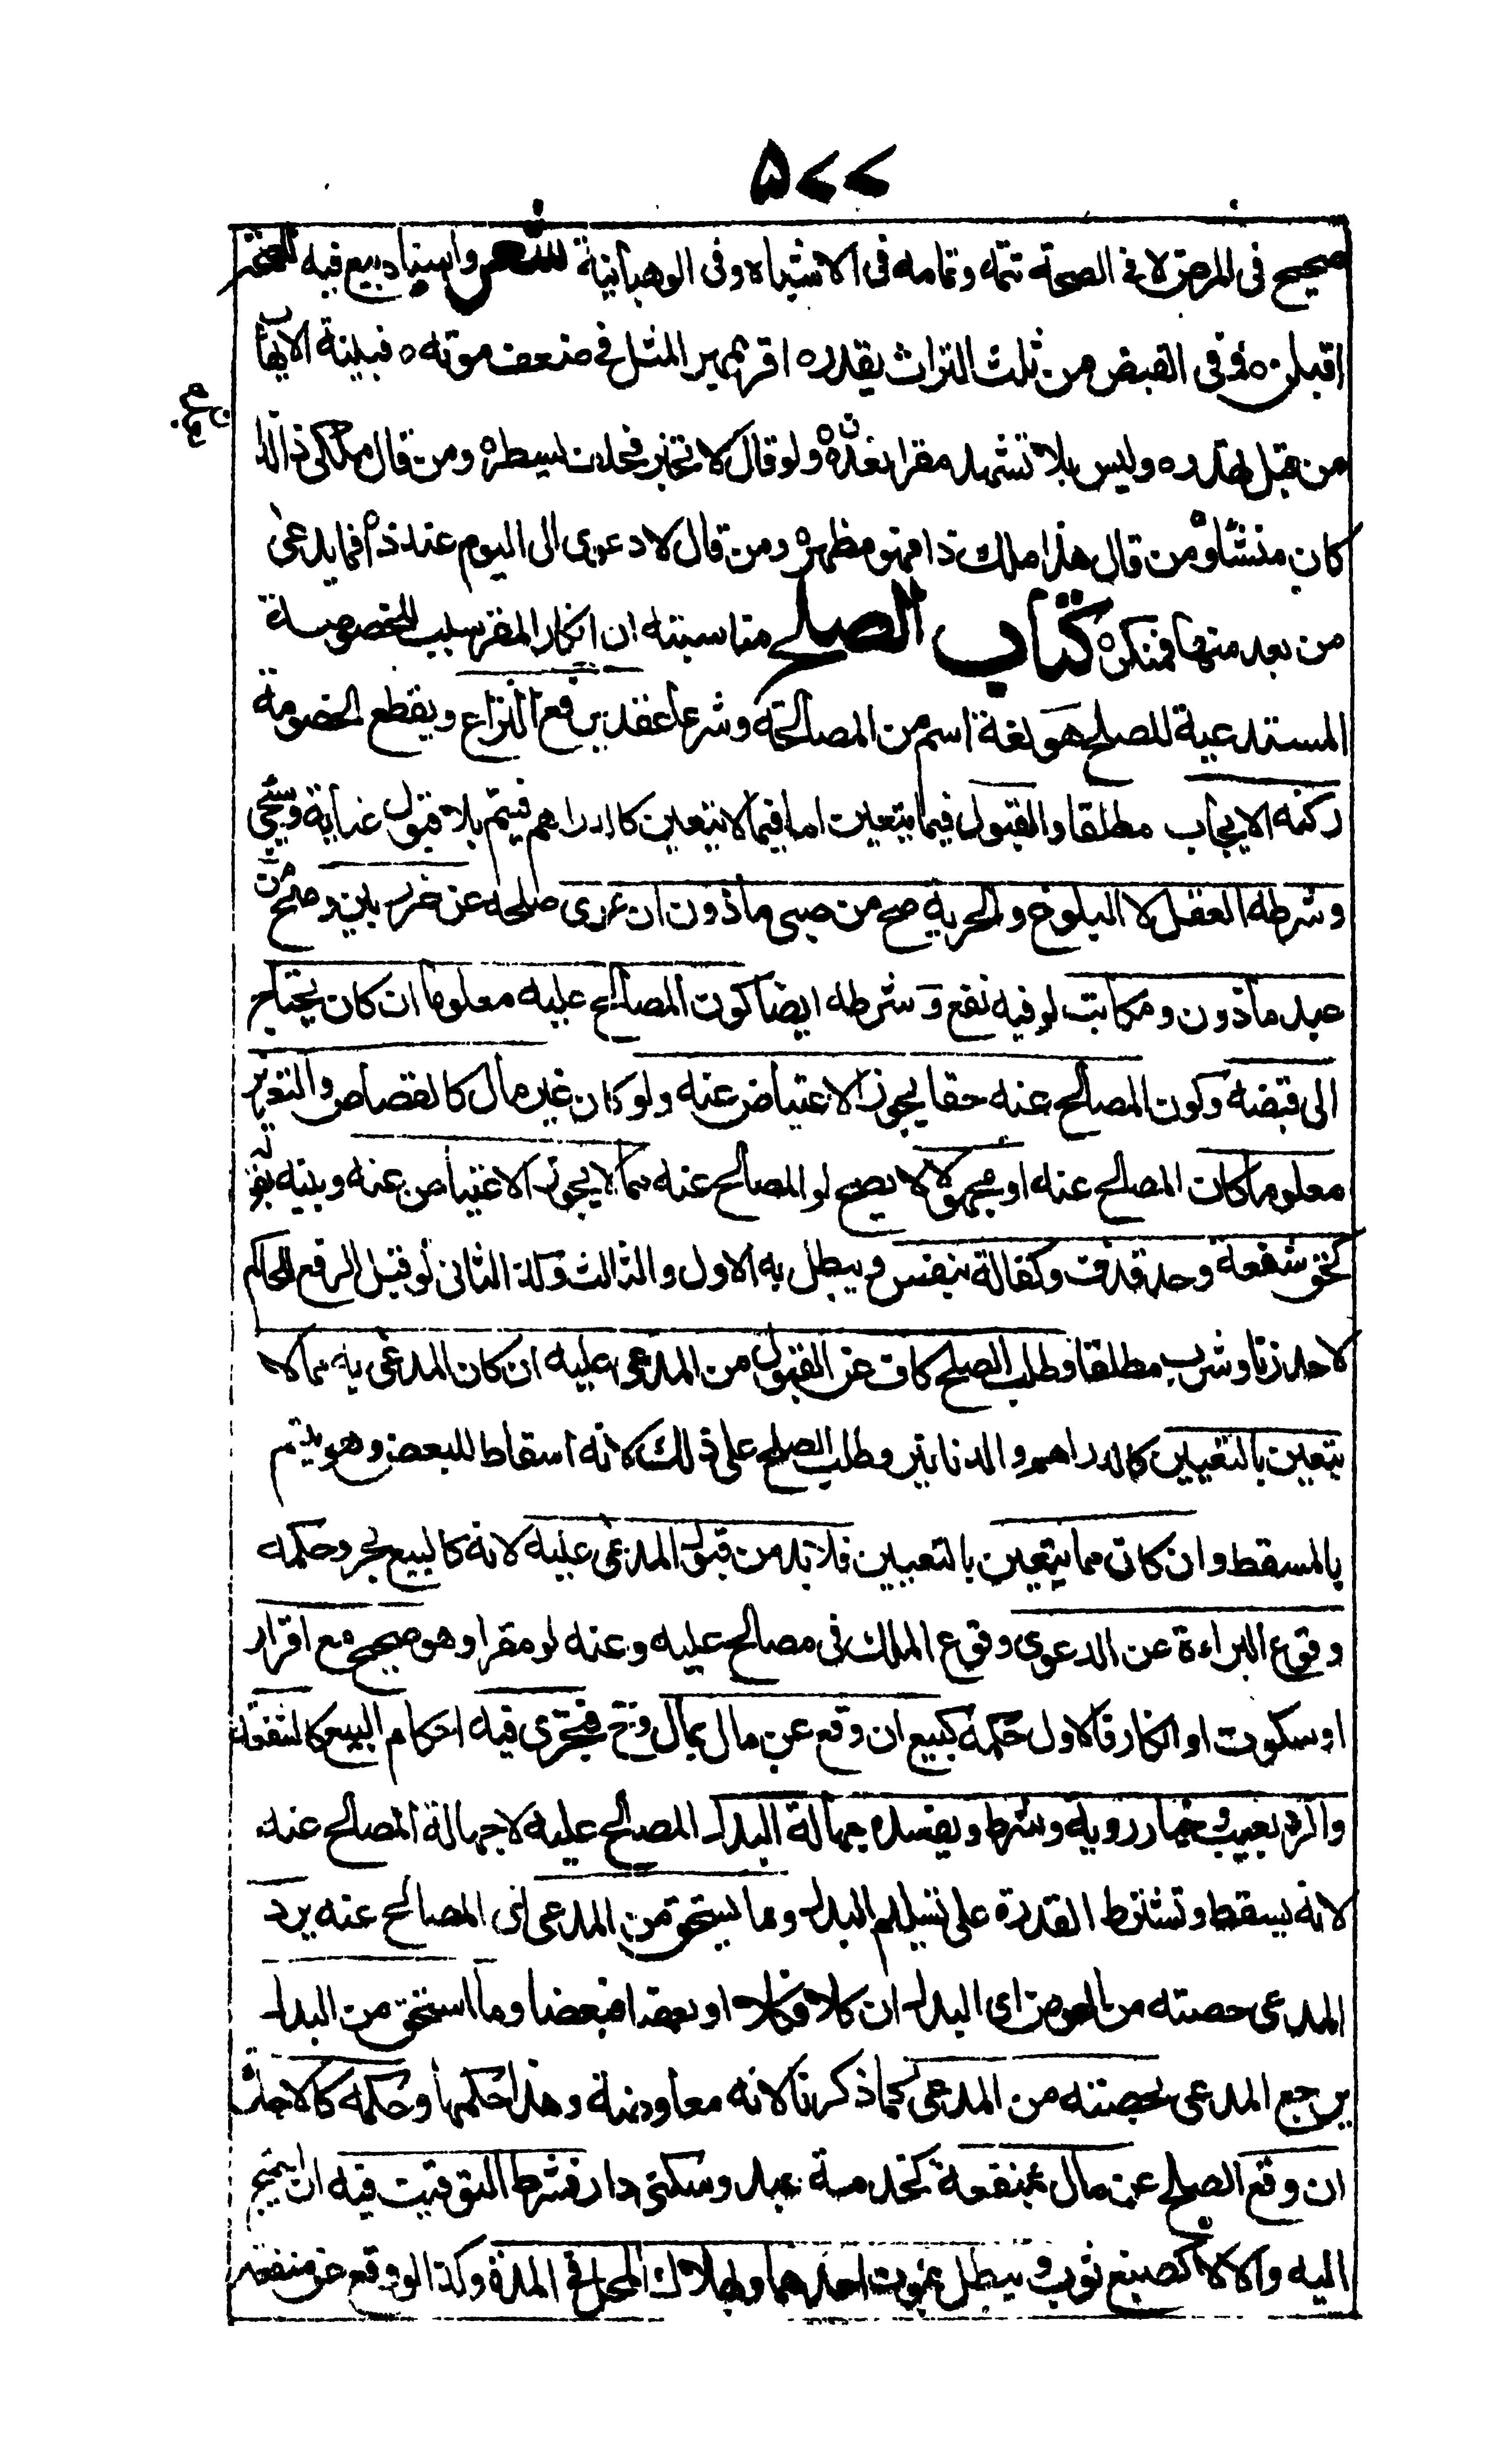 ۵۷۷
صحيح فى المرض لا فى الصحة تتمه وتمامه فى الاشباه وفى الوهبانية شعر واسناد بيع فيه للصحة
اقبلن ه وفى القبض من ثلث التراث يقدره اقر بمهر المثل فى ضعف موته ه فبينة الايهاب
من قبل تهدره وليس بلا تشهد مقرا نعده ولو قال لا تخبر فخلاف يسطره ومن قال ملكى ذا الذا
كان منشئا ومن قال هذا ملك ذا فهو مظهره ومن قال لا دعوى لى اليوم عند ذا فما يدعى
من بعد منها فمنكره كتاب الصلح مناسبته ان انكار المقر سبب للخصومة
المستدعية للصلح هو لغة اسم من المصالحة وشرعا عقد يرفع النزاع ويقطع الخصومة
ركنه الايجاب مطلقا والقبول فيما يتعين اما فيما لا يتعين كالدراهم فيتم بلا قبول عناية وسيجئ
وشرطه العقل لا البلوغ والحرية صح من صبى ماذون ان عرى صلحه عن ضرر بين وصح من
عبد ماذون ومكاتب لو فيه نفع وشرطه ايضا كون المصالح عليه معلوما ان كان يحتاج
الى قبضه وكون المصالح عنه حقا يجوز الاعتياض عنه ولو كان غير مال كالقصاص والتعزير
معلوما كان المصالح عنه او مجهولا لا يصح لو المصالح عنه مما لا يجوز الاعتياض عنه وبينه بقوله
كحق شفعة وحد قذف وكفالة بنفس ويبطل به الاول والثالث وكذا الثانى لو قبل الرفع للحاكم
لا حد زنا وشرب مطلقا وطلب الصلح كاف عن القبول من المدعى عليه ان كان المدعى به مما لا
يتعين بالتعيين كالدراهم والدنانير وطلب الصلح على ذلك لانه اسقاط للبعض وهو يتم
بالمسقط وان كان مما يتعين بالتعيين فلا بد من قبول المدعى عليه لانه كالبيع بحر وحكمه
وقوع البراءة عن الدعوى ووقوع الملك فى مصالح عليه وعنه لو مقرا وهو صحيح مع اقرار
او سكوت او انكار فالاول حكمه كبيع ان وقع عن مال بمال وح فتجرى فيه احكام البيع كالشفعة
والرد بعيب وخيار روية وشرط ويفسده جهالة البدل المصالح عليه لا جهالة المصالح عنه
لانه يسقط وتشترط القدرة على تسليم البدل وما يستحق من المدعى اى المصالح عنه يرد
المدعى حصته من العوض اى البدل ان كلا فكلا او بعضا فبعضا وما استحق من البدل
يرجع المدعى بحصته من المدعى كما ذكرنا لانه معاوضة وهذا حكمها وحكمه كالاجارة
ان وقع الصلح عن مال بمنفعة كخدمة عبد وسكنى دار فشرط التوقيت فيه ان احتيج
اليه والا لا كصبغ ثوب ويبطل بموت احدهما وبهلاك المحل فى المدة وكذا لو وقع عن منفعة